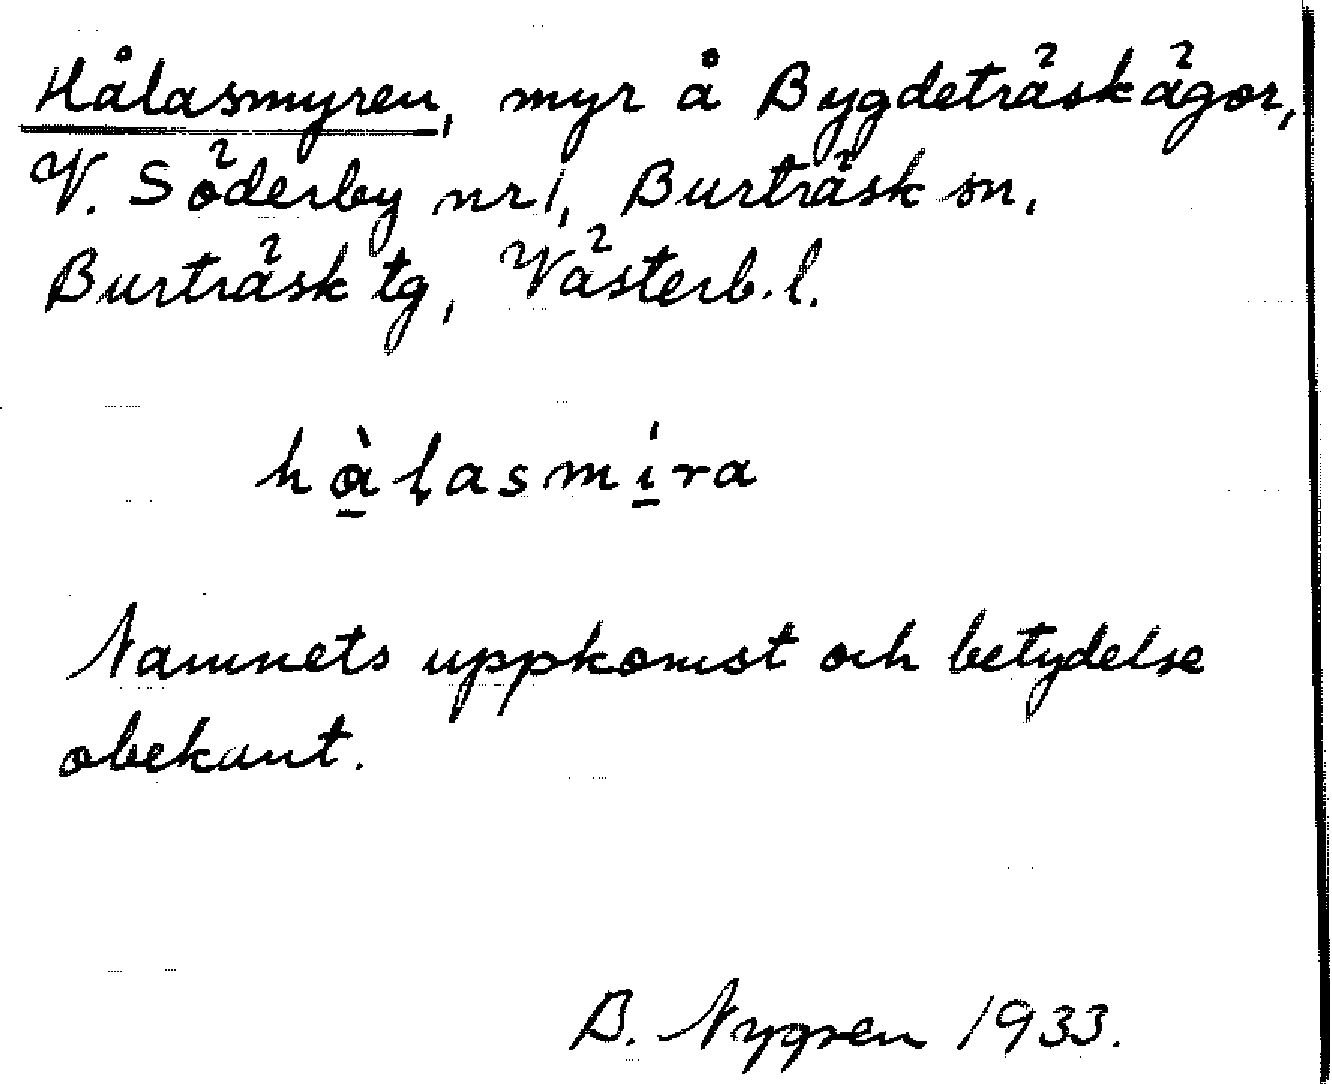 Hålasmyren, myr å Bygdeträskägor,
V. Söderby nr 1, Burträsk sn,
Burträsk tg, Västerb. l.
hàl̩asmíra
Namnets uppkomst och betydelse
obekant.
B. Nygren 1933.